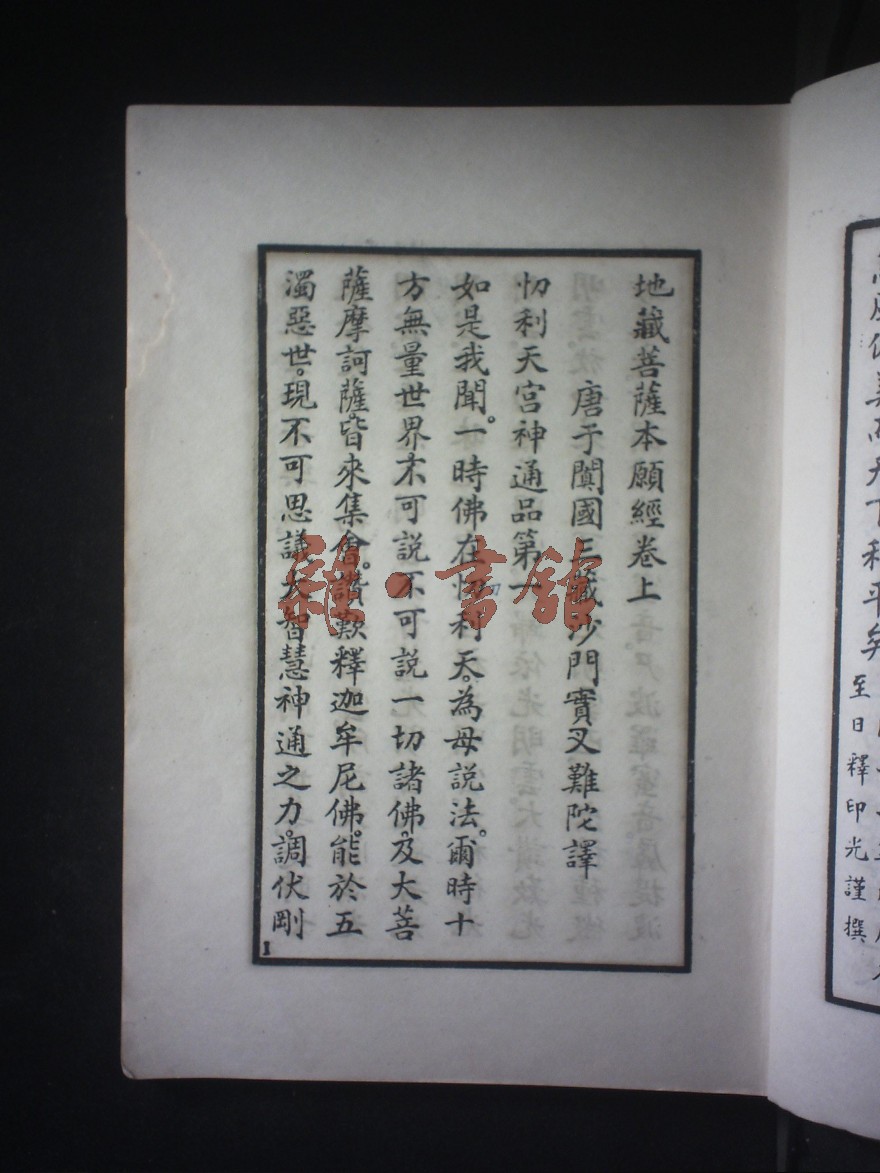 地藏菩薩本願經卷上
唐于闐國三藏沙門實叉難陀譯
忉利天宮神通品第一
如是我聞。一時佛在忉利天。為母說法。爾時十
方無量世界。不可說不可說一切諸佛。及大菩
薩摩訶薩。皆來集會。讚歎釋迦牟尼佛。能於五
濁惡世。現不可思議大智慧神通之力。調伏剛
1
下利平矣
至日釋印光謹撰
雜·書館